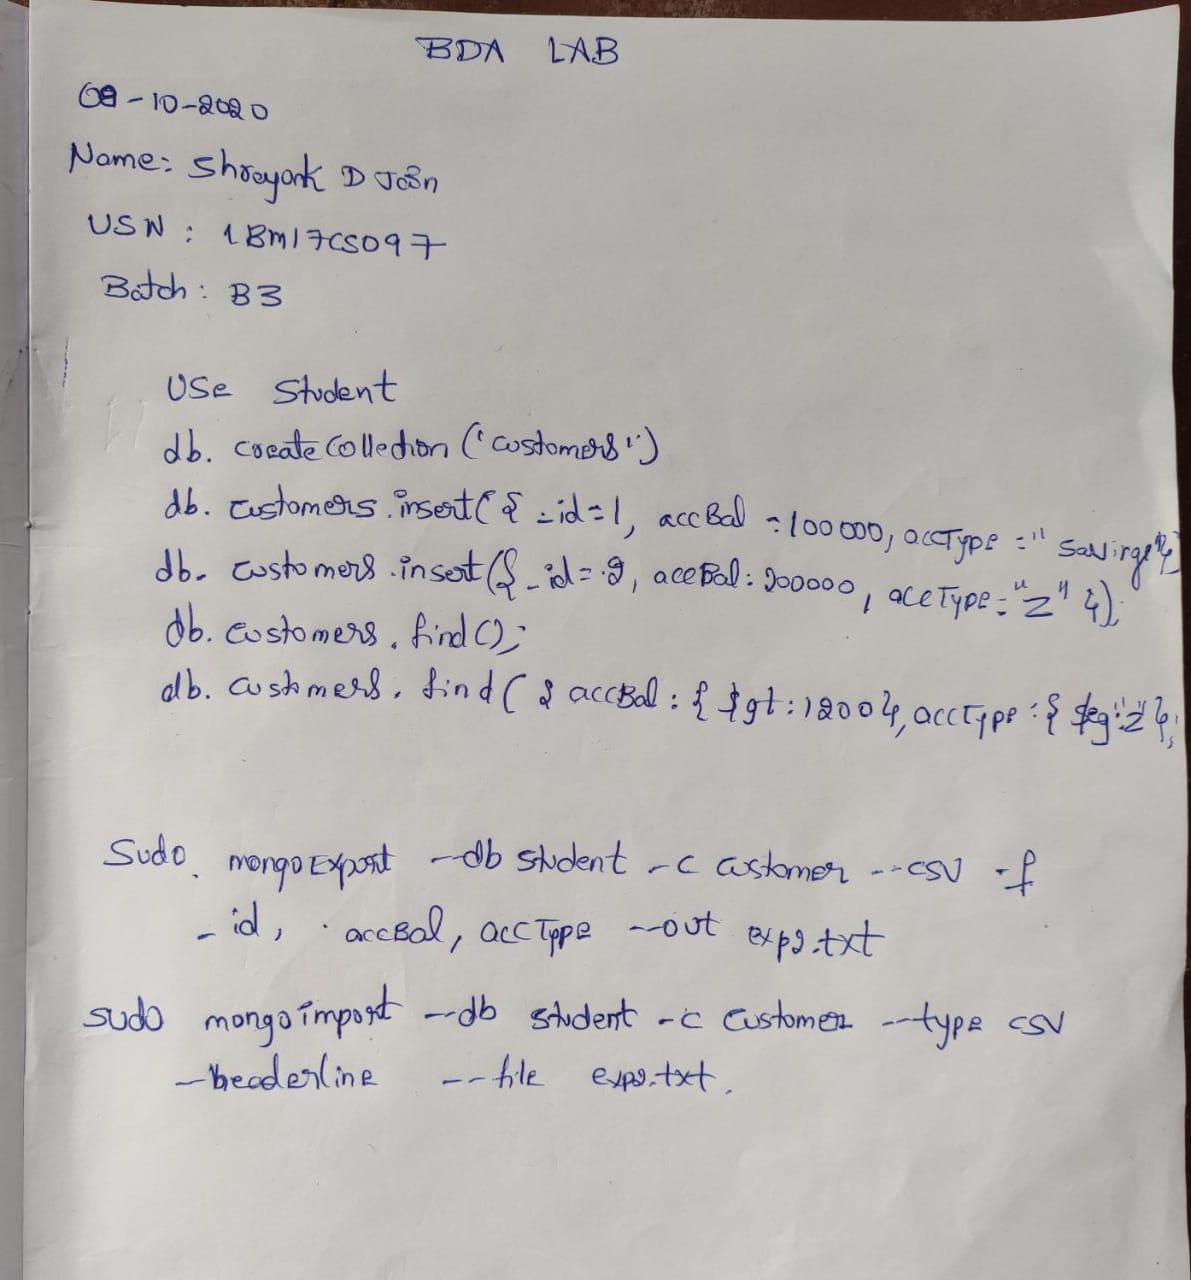 BDA LAB
09-10-2020
Name: Shreyank D Jain
USN : 1BM17CS097
Batch : B3
Use Student
db. createCollection ("customers")
db. customers.insert({ _id=1, accBal =100000, accType =" Savings"}
db. customers.insert({ _id=2, accBal: 200000, accType="Z" });
db. customers. find();
db. customers. find( { accBal : { $gt:1200}, accType : { $eg:"Z"};
Sudo mongoExport --db student -c customer --csv -f
_id, accBal, accType --out exp2.txt
sudo mongoimport --db student -c customer --type csv
--headerline --file exp2.txt.